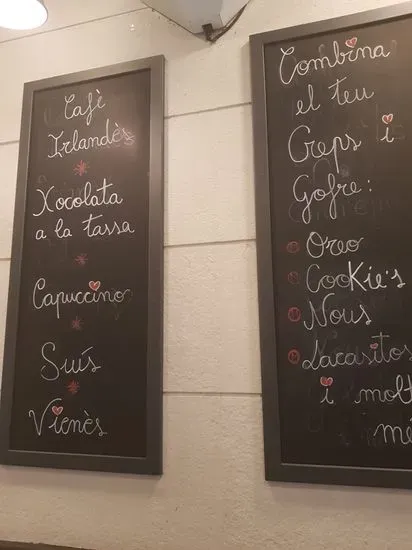 Cafè
Irlandès
Xocolata
a la tassa
Capuccino
Suís
Vienès
Combina
el teu
Creps i
Gofre:
Oreo
Cookie's
Nous
Lacasitos
i molt
mé